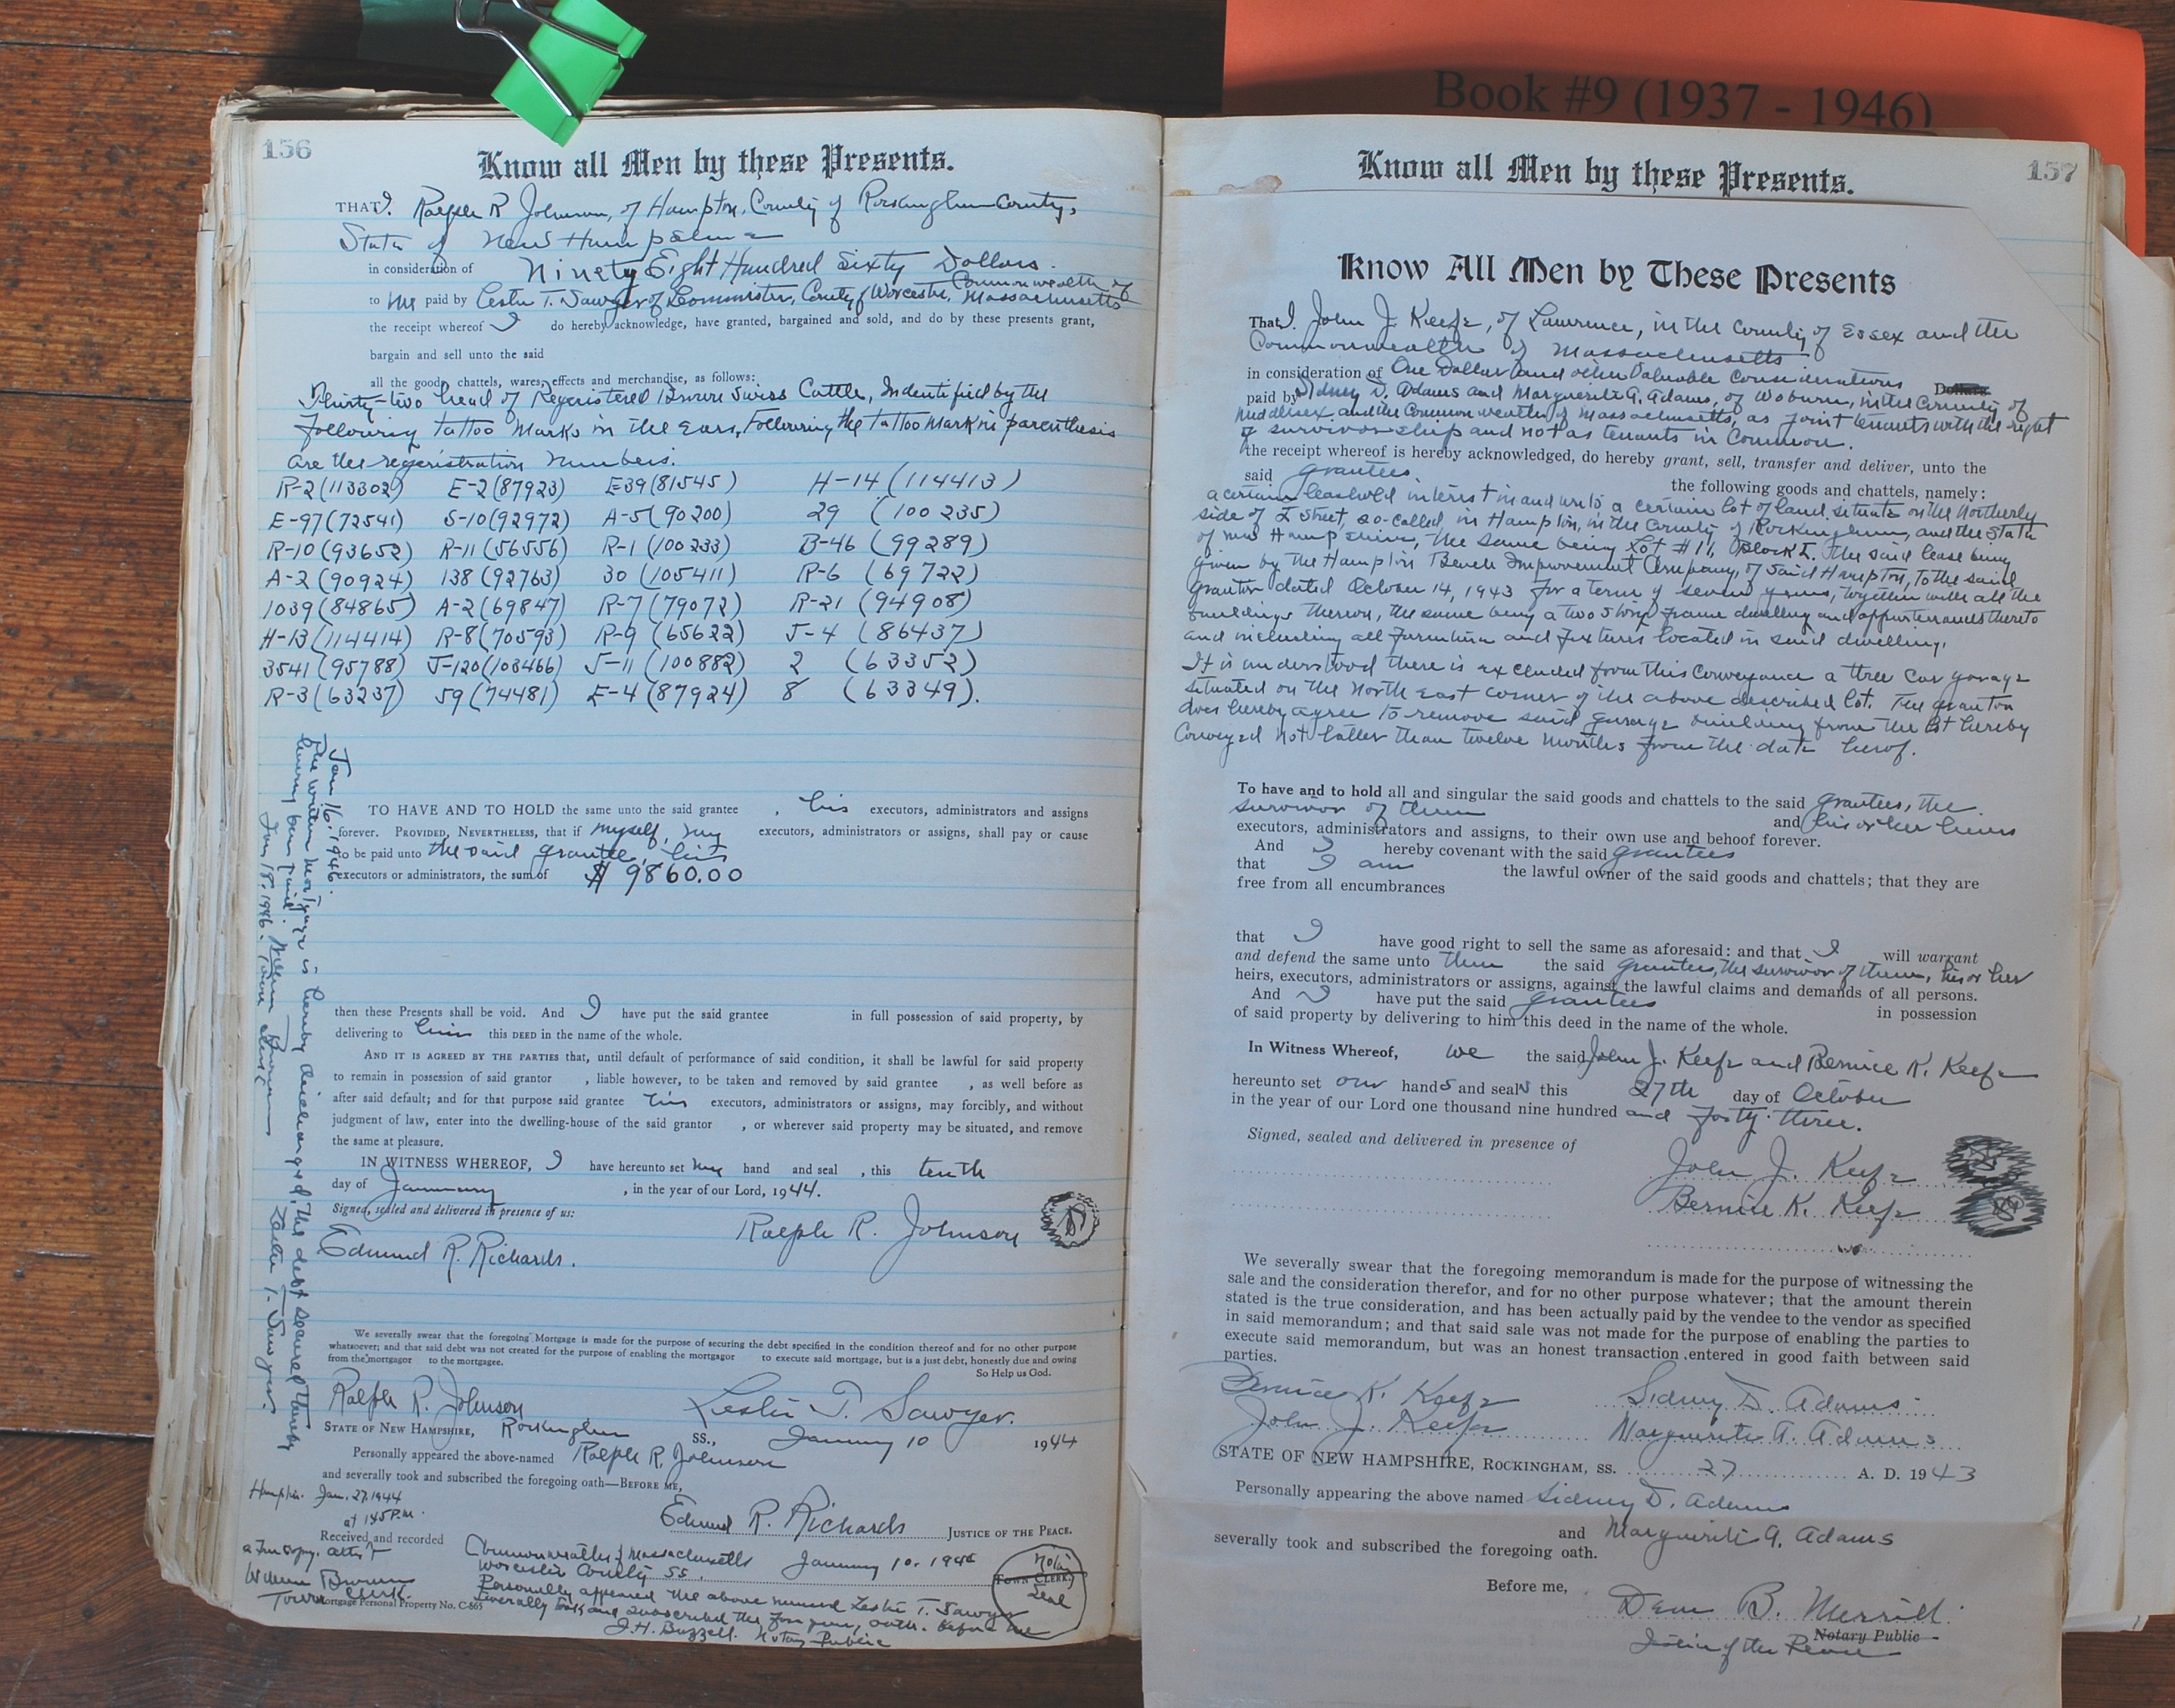 Book #9 (1937 - 1946)
156
Know all Men by these Presents.
THAT I, Ralph R Johnson, of Hampton, County of Rockingham County,
State of New Hampshire
in consideration of Ninety Eight Hundred Sixty Dollars.
to me paid by Leslie T. Sawyer of Leominster, County of Worcester, Commonwealth of Massachusetts
the receipt whereof I do hereby acknowledge, have granted, bargained and sold, and do by these presents grant,
bargain and sell unto the said
all the goods, chattels, wares, effects and merchandise, as follows:
Thirty-two head of Regeristered Brown Swiss Cattle, Indentified by the
following tattoo marks in the ears, Following the tattoo mark in parenthesis
are the regeristration numbers.
R-2 (113302) E-2 (87923) E39 (81545) H-14 (114413)
E-97 (72541) S-10 (92972) A-5 (90200) 29 (100235)
R-10 (93652) R-11 (56556) R-1 (100233) B-46 (99289)
A-2 (90924) 138 (92763) 30 (105411) R-6 (69722)
1039 (84865) A-2 (69847) R-7 (79072) R-21 (94908)
H-13 (114414) R-8 (70593) R-9 (65622) J-4 (86437)
3541 (95788) J-120 (103466) J-11 (100882) 2 (63352)
R-3 (63237) 59 (74481) E-4 (87924) 8 (63349).
TO HAVE AND TO HOLD the same unto the said grantee , his executors, administrators and assigns
forever. PROVIDED, NEVERTHELESS, that if myself, my executors, administrators or assigns, shall pay or cause
to be paid unto the said grantee, his
executors or administrators, the sum of $ 9860.00
then these Presents shall be void. And I have put the said grantee in full possession of said property, by
delivering to him this DEED in the name of the whole.
AND IT IS AGREED BY THE PARTIES that, until default of performance of said condition, it shall be lawful for said property
to remain in possession of said grantor , liable however, to be taken and removed by said grantee , as well before as
after said default; and for that purpose said grantee his executors, administrators or assigns, may forcibly, and without
judgment of law, enter into the dwelling-house of the said grantor , or wherever said property may be situated, and remove
the same at pleasure.
IN WITNESS WHEREOF, I have hereunto set my hand and seal , this tenth
day of January , in the year of our Lord, 1944.
Signed, sealed and delivered in presence of us:
Ralph R. Johnson
Edmund R. Richards.
We severally swear that the foregoing Mortgage is made for the purpose of securing the debt specified in the condition thereof and for no other purpose
whatsoever; and that said debt was not created for the purpose of enabling the mortgagor to execute said mortgage, but is a just debt, honestly due and owing
from the mortgagor to the mortgagee.
So Help us God.
Ralph R. Johnson Leslie T. Sawyer.
STATE OF NEW HAMPSHIRE, Rockingham SS., January 10 1944
Personally appeared the above-named Ralph R. Johnson
and severally took and subscribed the foregoing oath—BEFORE ME,
Edmund R. Richards JUSTICE OF THE PEACE.
Hampton. Jan. 27, 1944
at 1 45 P.M.
Received and recorded
a true copy. attest
William Brown
Town Clerk.
Commonwealth of Massachusetts January 10. 1944
Worcester County SS.
TOWN CLERK.
Personally appeared the above named Leslie T. Sawyer
severally took and subscribed the foregoing oath. before me
J.H. Buzzell. Notary Public
Seal
Mortgage Personal Property No. C-865
Jan 16. 1946.
The within mortgage is hereby discharged. The debt secured thereby
having been paid. Leslie T. Sawyer.
Jan 18. 1946. William Brown
Town Clerk
157
Know all Men by these Presents.
Know All Men by These Presents
That I, John J. Keefe, of Lawrence, in the County of Essex and the
Commonwealth of Massachusetts
in consideration of One Dollar and other Valuable Considerations Dollars
paid by Sidney D. Adams and Marguerite A. Adams, of Woburn, in the County of
Middlesex and the Commonwealth of Massachusetts, as joint tenants with the right
of survivorship and not as tenants in Common.
the receipt whereof is hereby acknowledged, do hereby grant, sell, transfer and deliver, unto the
said grantees the following goods and chattels, namely:
a certain leasehold interest in and unto a certain lot of land situate on the Northerly
side of I Street, so-called in Hampton, in the County of Rockingham, and the State
of New Hampshire, the same being Lot #11, Block I. The said lease being
given by the Hampton Beach Improvement Company, of said Hampton, to the said
grantor dated October 14, 1943 for a term of seven years, together with all the
buildings thereon, the same being a two story frame dwelling and appurtenances thereto
and including all furniture and fixtures located in said dwelling.
It is understood there is excluded from this conveyance a three car garage
situated on the North East corner of the above described lot. The grantor
does hereby agree to remove said garage building from the lot hereby
Conveyed not latter than twelve months from the date herof.
To have and to hold all and singular the said goods and chattels to the said grantees, the
survivor of them and his or her heirs
executors, administrators and assigns, to their own use and behoof forever.
And I hereby covenant with the said grantees
that I am the lawful owner of the said goods and chattels; that they are
free from all encumbrances
that I have good right to sell the same as aforesaid: and that I will warrant
and defend the same unto them the said grantees, the survivor of them, his or her
heirs, executors, administrators or assigns, against the lawful claims and demands of all persons.
And I have put the said grantees in possession
of said property by delivering to him this deed in the name of the whole.
In Witness Whereof, we the said John J. Keefe and Bernice K. Keefe
hereunto set our hands and seals this 27th day of October
in the year of our Lord one thousand nine hundred and forty-three.
Signed, sealed and delivered in presence of
John J. Keefe
Bernice K. Keefe
We severally swear that the foregoing memorandum is made for the purpose of witnessing the
sale and the consideration therefor, and for no other purpose whatever; that the amount therein
stated is the true consideration, and has been actually paid by the vendee to the vendor as specified
in said memorandum; and that said sale was not made for the purpose of enabling the parties to
execute said memorandum, but was an honest transaction entered in good faith between said
parties.
Bernice K. Keefe Sidney D. Adams
John J. Keefe Marguerite A. Adams
STATE OF NEW HAMPSHIRE, ROCKINGHAM, SS. 27 A. D. 1943
Personally appearing the above named Sidney D. Adams
and Marguerite A. Adams
severally took and subscribed the foregoing oath.
Before me,
Dean B. Merrill
Notary Public
Justice of the Peace